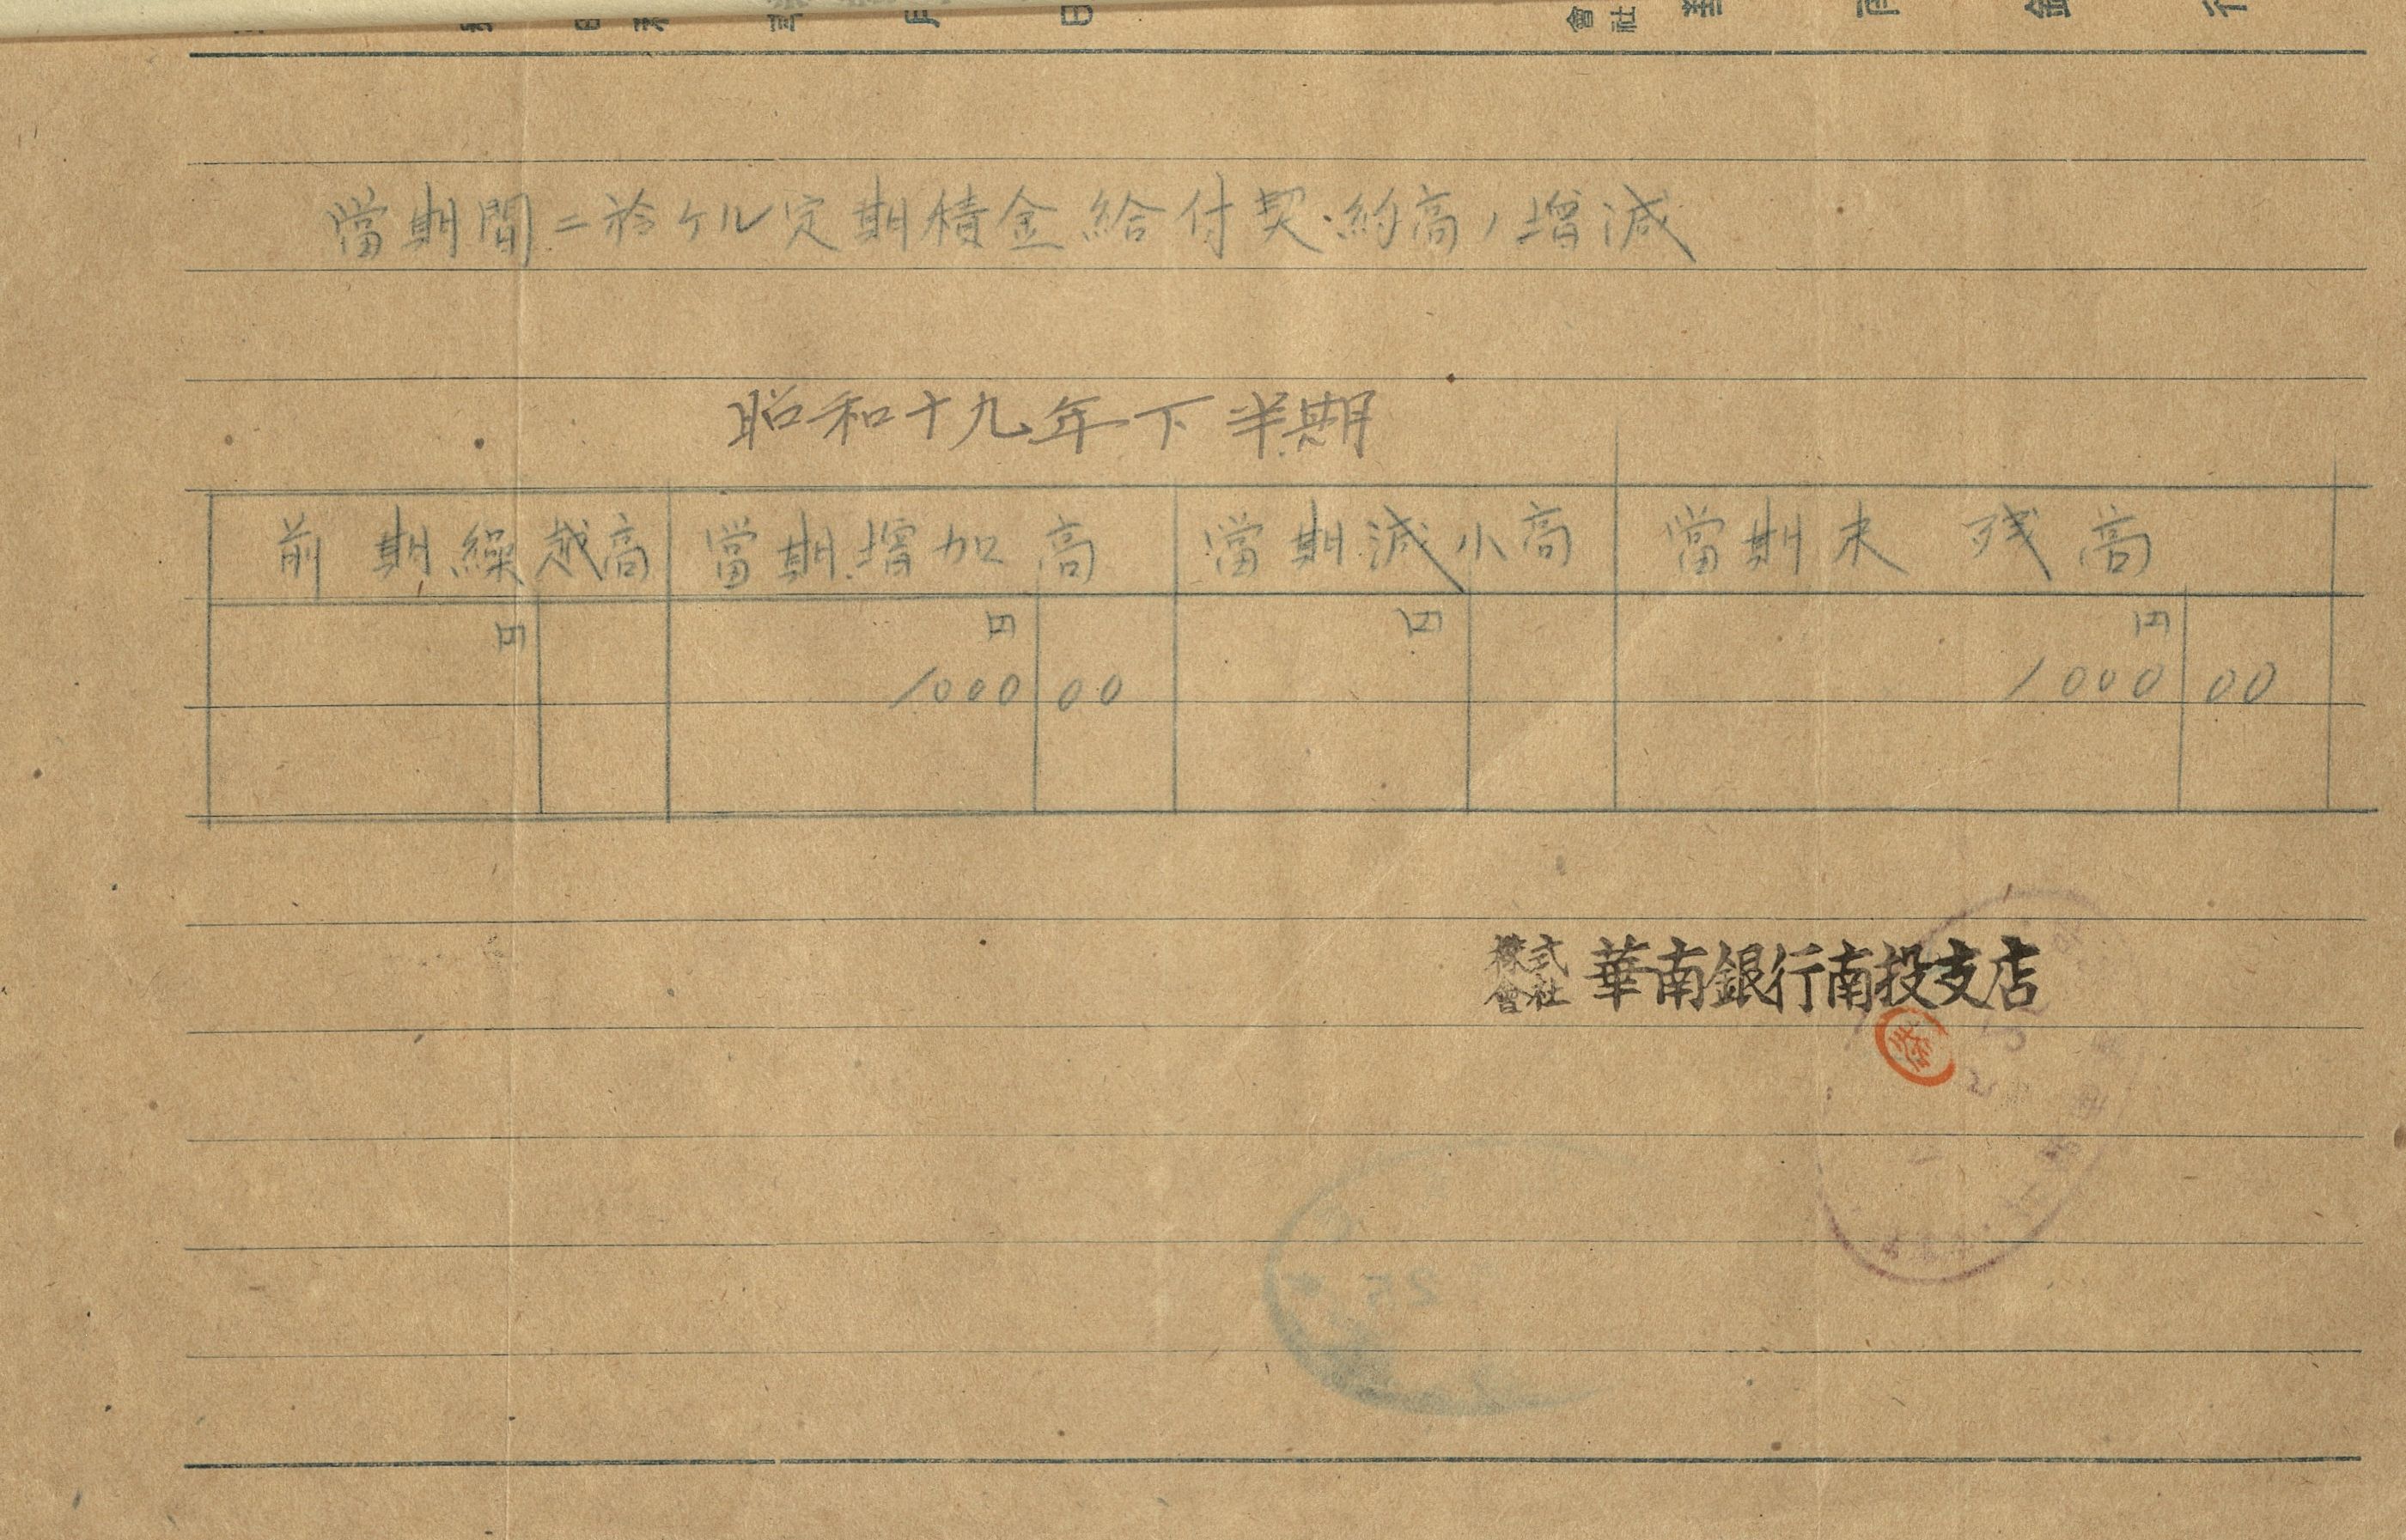 當期間ニ於ケル定期積金給付契約高ノ増減
昭和十九年下半期
前期繰越高 當期増加高 當期減小高 當期末残高
円 円 円 円
1000 00 1000 00
株式會社 華南銀行南投支店
25